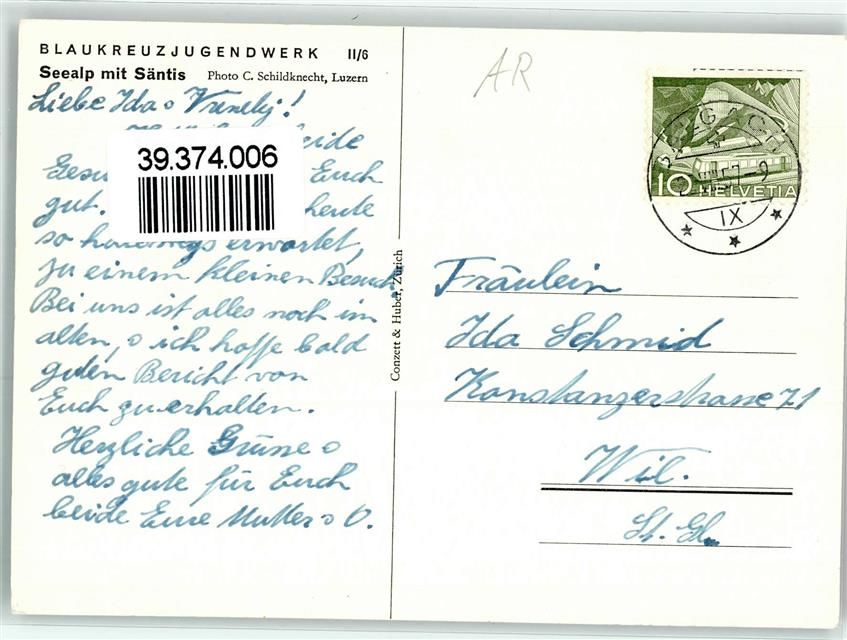 BLAUKREUZJUGENDWERK II/6
Seealp mit Säntis Photo C. Schildknecht, Luzern
Liebe Ida
39.374.006
Euch
gut. heute
so erwartet,
zu einem kleinen Besuch.
Bei uns ist alles noch im
alten, o ich hoffe bald
guten Bericht von
Euch zu erhalten.
Herzliche Grüsse o
alles gute für Euch
beide Eure Mutter o V.
Conzett & Huber, Zürich
AR
10 HELVETIA
IX
Fräulein
Ida Schmid
Konstanzerstrasse 71
Wil.
St. Gln